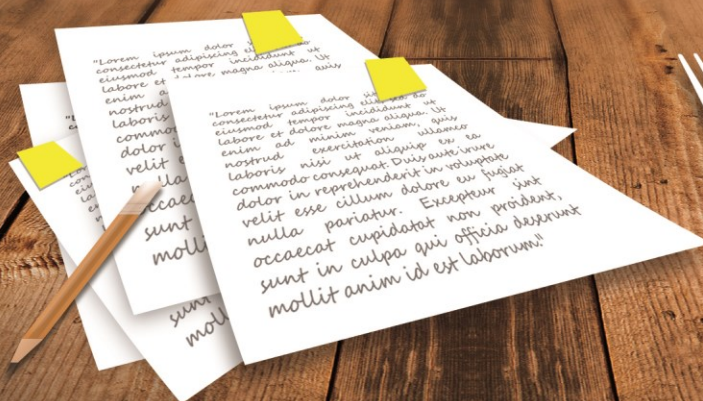 "Lorem ipsum dolor
consectetur adipiscing
eiusmod tempor incididunt ut
labore et dolore magna aliqua. Ut
enim quis
nostrud
laboris
commo
dolor i
velit e
nulla
occaec
sunt
molli
"Lorem ipsum dolor
consectetur adipiscing elit, sed do
eiusmod tempor incididunt ut
labore et dolore magna aliqua. Ut
enim ad minim veniam, quis
nostrud exercitation ullamco
laboris nisi ut aliquip ex ea
commodo consequat. Duis aute irure
dolor in reprehenderit in voluptate
velit esse cillum dolore eu fugiat
nulla pariatur. Excepteur sint
occaecat cupidatat non proident,
sunt in culpa qui officia deserunt
mollit anim id est laborum."
sunt
moll